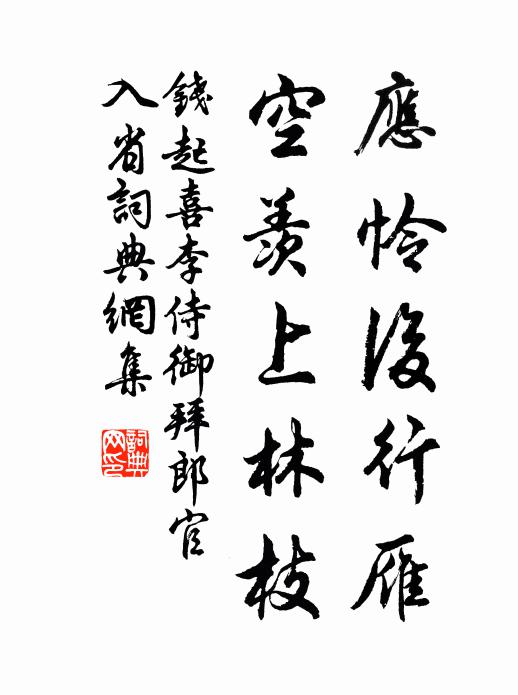 應憐後行雁
空羨上林枝
錢起喜李侍御拜郎官
入省詞典網集
詞典
网印